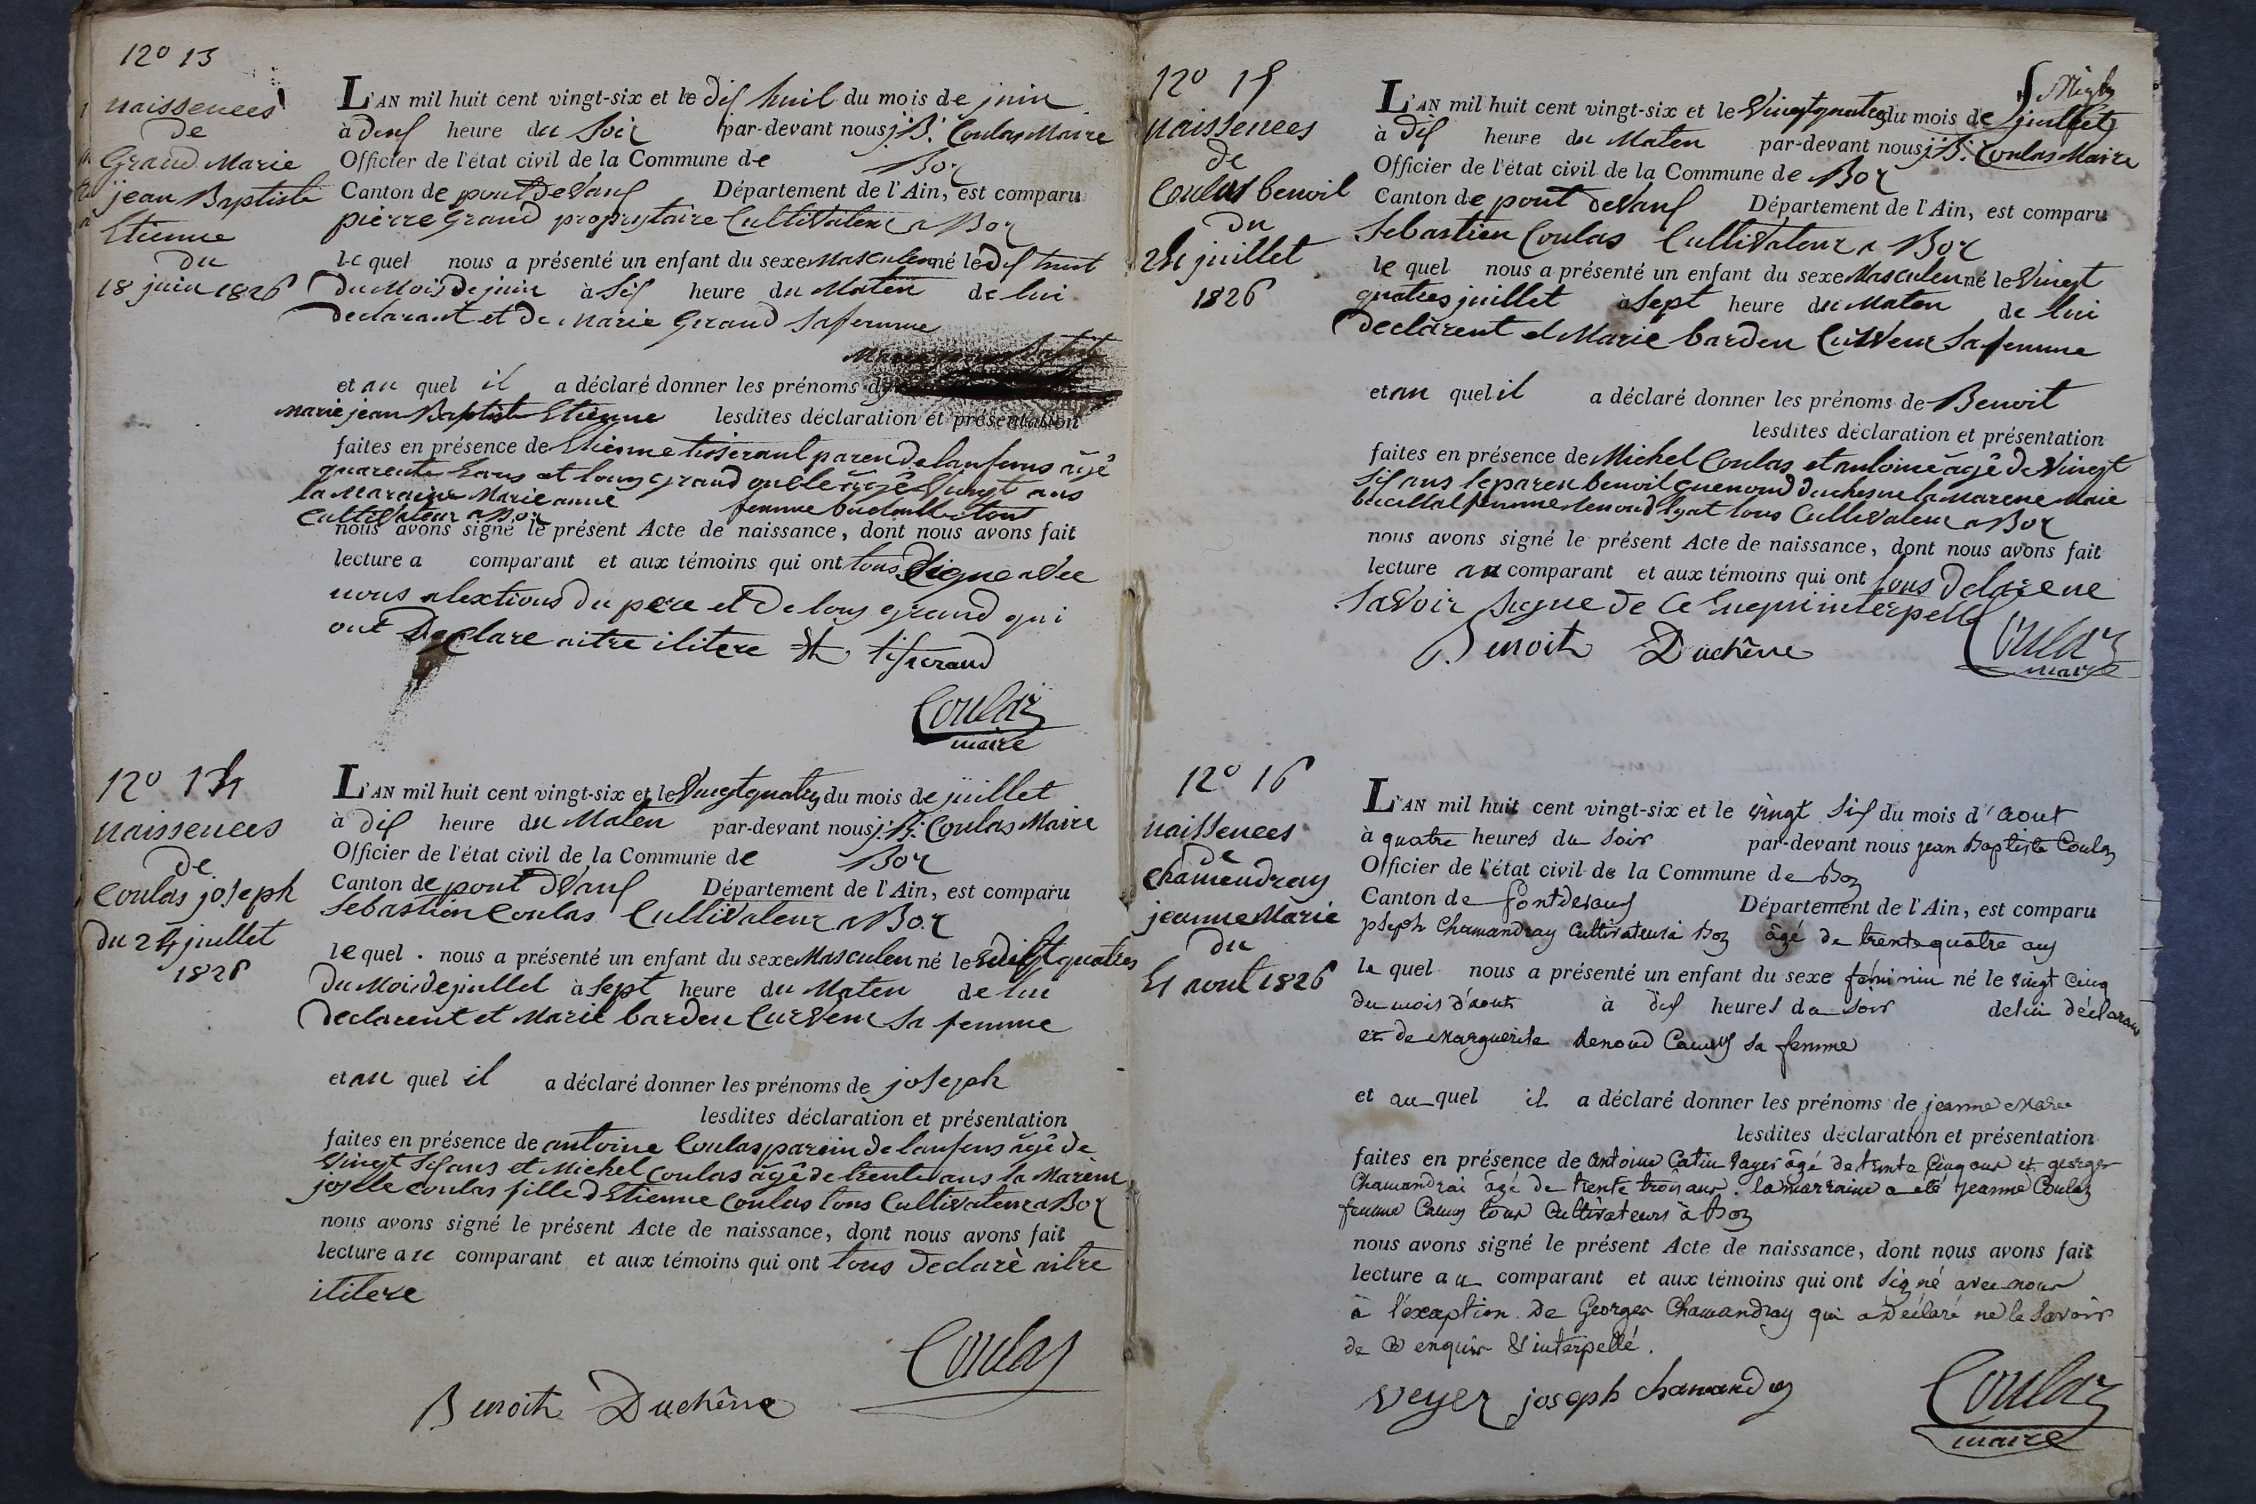 12º 13
naissences
de
Grand Marie
jean Baptiste
Etienne
du
18 juin 1826
L'AN mil huit cent vingt-six et le dix huit du mois de juin
à deux heure du Soir par-devant nous j. B. Coulas Maire
Officier de l'état civil de la Commune de Boz
Canton de pont de Vaux Département de l'Ain, est comparu
pierre Grand propriétaire Cultivateur a Boz
le quel nous a présenté un enfant du sexe Masculen né le dix huit
du Mois de juin à Six heure du Maten de lui
declarant et de Marie Grand Sa femme
et au quel il a déclaré donner les prénoms de
Marie jean Baptiste Etienne lesdites déclaration et présentation
faites en présence de Etienne tisseraut paren de lanfens âgé
quarente ans et louy grand oncle âgé Vingt ans
la Maraine Marie anne femme tous
Cultivateur a Boz
nous avons signé le présent Acte de naissance, dont nous avons fait
lecture a comparant et aux témoins qui ont tous Signe avec
nous alextions du pere et de louy grand qui
ont Declare aitre ilitere Et tisserand
Coulaz
maire
12º 14
naissences
de
Coulas joseph
du 24 juillet
1826
L'AN mil huit cent vingt-six et le Vingt quatres du mois de juillet
à dix heure du Maten par-devant nous j. B. Coulas Maire
Officier de l'état civil de la Commune de Boz
Canton de pont de Vaux Département de l'Ain, est comparu
Sebastien Coulas Cultivateur a Boz
le quel nous a présenté un enfant du sexe Masculen né le Vingt quatres
du Mois de juillet à Sept heure du Maten de lui
declarent et Marie barden Curveur Sa femme
et au quel il a déclaré donner les prénoms de joseph
lesdites déclaration et présentation
faites en présence de antoine Coulas parein de lanfens âgé de
Vingt Six ans et Michel Coulas âgé de trente ans la Marene
josette Coulas fille d'Etienne Coulas tous Cultivateur a Boz
nous avons signé le présent Acte de naissance, dont nous avons fait
lecture au comparant et aux témoins qui ont tous declaré aitre
ilitere
Coulaz
Benoith Duchêne
12º 15
naissences
de
Coulas benoit
du
24 juillet
1826
L'AN mil huit cent vingt-six et le Vingt quatres du mois de juillet
à dix heure du Maten par-devant nous j. B. Coulas Maire
Officier de l'état civil de la Commune de Boz
Canton de pont de Vaux Département de l'Ain, est comparu
Sebastien Coulas Cultivateur a Boz
le quel nous a présenté un enfant du sexe Masculen né le Vingt
quatres juillet à Sept heure du Maten de lui
declarent et Marie barden Curveur Sa femme
et au quel il a déclaré donner les prénoms de Benoit
lesdites déclaration et présentation
faites en présence de Michel Coulas et antoine âgé de Vingt
Six ans le paren benoit guenoud duchesne la Marene Marie
femme Renoud tous Cultivateur a Boz
nous avons signé le présent Acte de naissance, dont nous avons fait
lecture au comparant et aux témoins qui ont tous delarene
Savoir Signe de Ce Enquis interpelle
Benoith Duchêne
Coulaz
maire
12º 16
naissences
de
Chamendray
jeanne Marie
du
aout 1826
L'AN mil huit cent vingt-six et le vingt Six du mois d'aout
à quatre heures du soir par-devant nous jean Baptiste Coulaz
Officier de l'état civil de la Commune de Boz
Canton de Pontdevaux Département de l'Ain, est comparu
joseph Chamandray Cultivateur à Boz âgé de trente quatre ans
le quel nous a présenté un enfant du sexe féminin né le vingt cinq
du mois d'aout à dix heures du soir de lui déclarant
et de Marguerite Renoud Camus sa femme
et au quel il a déclaré donner les prénoms de jeanne Marie
lesdites déclaration et présentation
faites en présence de Antoine Catin Vayer âgé de trente Cinq ans et georges
Chamandrai âgé de trente trois ans. la marraine a été jeanne Coulaz
femme Camus tous Cultivateurs à Boz
nous avons signé le présent Acte de naissance, dont nous avons fait
lecture au comparant et aux témoins qui ont signé avec nous
à l'exception de Georges Chamandray qui a déclaré ne le savoir
de ce enquis & interpellé.
Veyer joseph chamandray
Coulaz
maire